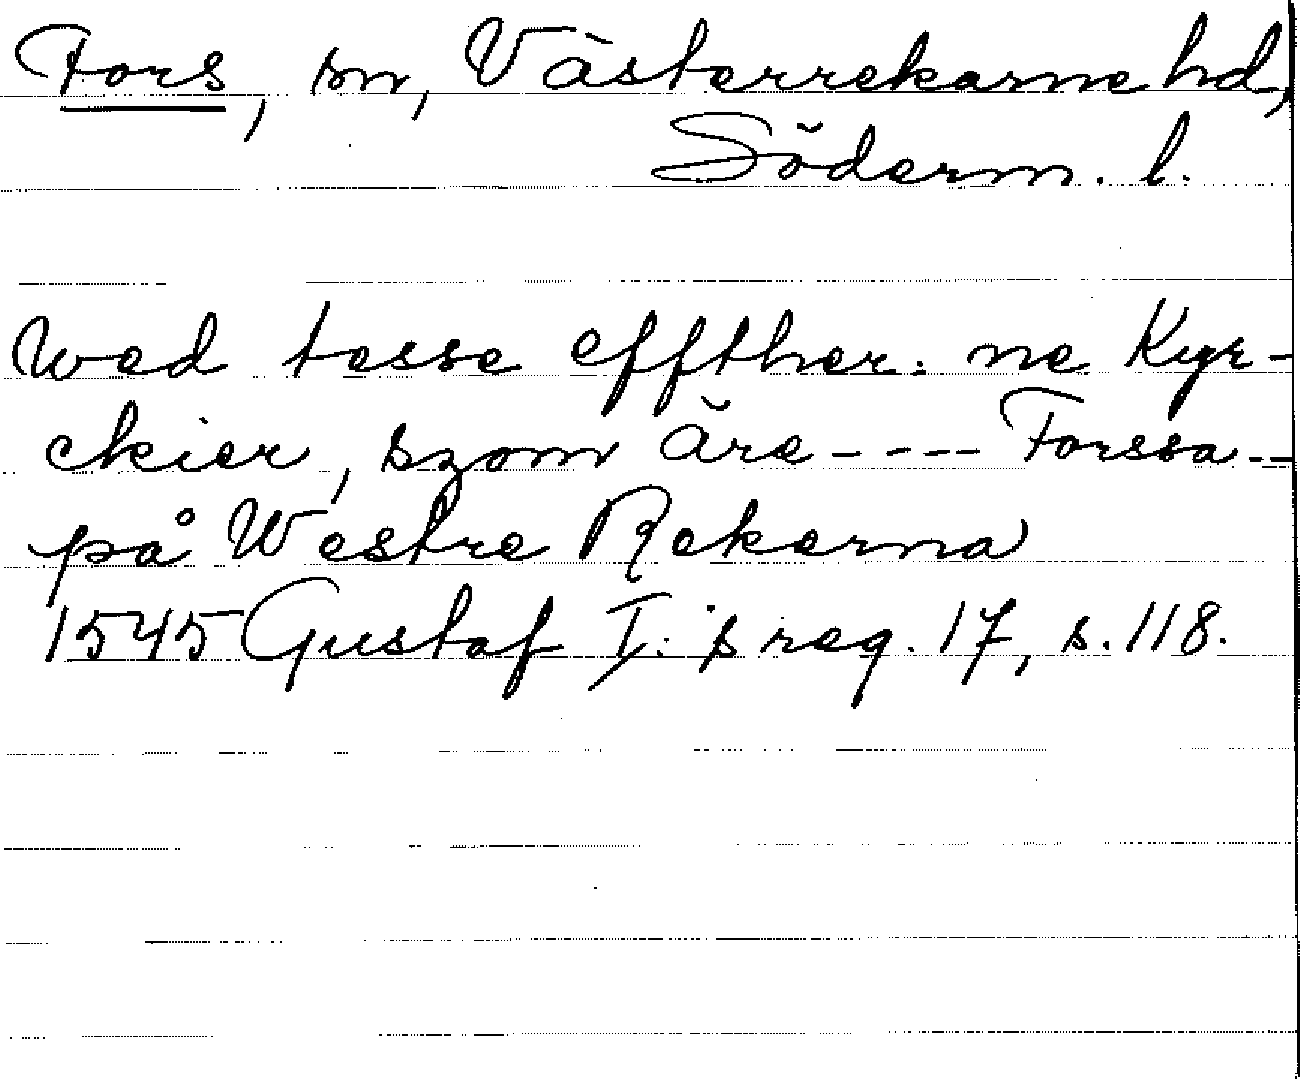 Fors, sn, Västerrekarne hd,
Söderm. l.
Wed tesse effther: ne Kyr-
ckier, szom äre - - - - Forssa - -
på Westre Rekerna
1545 Gustaf I: s reg. 17, s. 118.